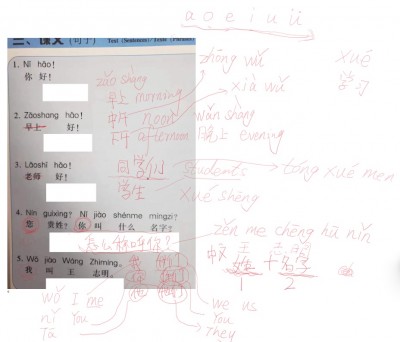 a o e i u ü
三、课文(句子) Text (Sentences)/Texte (Phrases)
1. Nǐ hǎo!
你 好!
2. Zǎoshang hǎo!
早上 好!
3. Lǎoshī hǎo!
老师 好!
4. Nín guìxìng? Nǐ jiào shénme míngzi?
您 贵姓? 你 叫 什么 名字?
怎么称呼你?
5. Wǒ jiào Wáng Zhìmíng.
我 叫 王 志明。
zǎo shàng
早上 morning
中午 noon
下午 afternoon
晚上 evening
wǎn shàng
zhōng wǔ
xià wǔ
xué
学习
同学们 students
tóng xué men
学生
xué shēng
zěn me chēng hū nín
中文 姓 + 名字
1 2
wǒ I me
nǐ You
Tā
我 们
we us
You
They